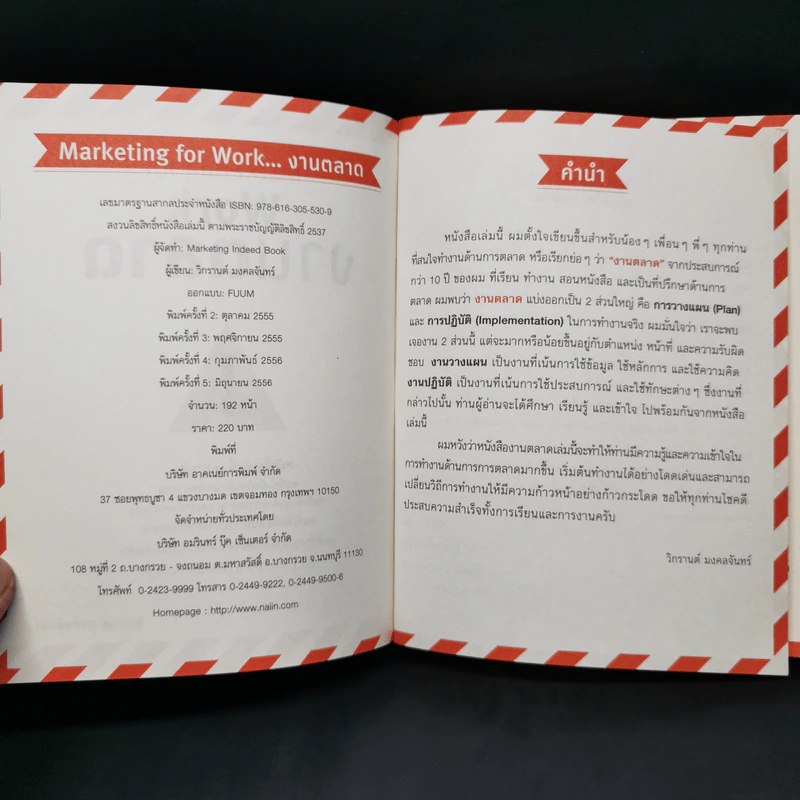 Marketing for Work... งานตลาด
เลขมาตรฐานสากลประจำหนังสือ ISBN: 978-616-305-530-9
สงวนลิขสิทธิ์หนังสือเล่มนี้ ตามพระราชบัญญัติลิขสิทธิ์ 2537
ผู้จัดทำ: Marketing Indeed Book
ผู้เขียน: วิกรานต์ มงคลจันทร์
ออกแบบ: FUUM
พิมพ์ครั้งที่ 2: ตุลาคม 2555
พิมพ์ครั้งที่ 3: พฤศจิกายน 2555
พิมพ์ครั้งที่ 4: กุมภาพันธ์ 2556
พิมพ์ครั้งที่ 5: มิถุนายน 2556
จำนวน: 192 หน้า
ราคา: 220 บาท
พิมพ์ที่
บริษัท อาคเนย์การพิมพ์ จำกัด
37 ซอยพุทธบูชา 4 แขวงบางมด เขตจอมทอง กรุงเทพฯ 10150
จัดจำหน่ายทั่วประเทศโดย
บริษัท อมรินทร์ บุ๊ค เซ็นเตอร์ จำกัด
108 หมู่ที่ 2 ถ.บางกรวย - จงถนอม ต.มหาสวัสดิ์ อ.บางกรวย จ.นนทบุรี 11130
โทรศัพท์ 0-2423-9999 โทรสาร 0-2449-9222, 0-2449-9500-6
Homepage : http://www.naiin.com
คำนำ
หนังสือเล่มนี้ ผมตั้งใจเขียนขึ้นสำหรับน้องๆ เพื่อนๆ พี่ๆ ทุกท่าน
ที่สนใจทำงานด้านการตลาด หรือเรียกย่อๆ ว่า "งานตลาด" จากประสบการณ์
กว่า 10 ปี ของผม ที่เรียน ทำงาน สอนหนังสือ และเป็นที่ปรึกษาด้านการ
ตลาด ผมพบว่า งานตลาด แบ่งออกเป็น 2 ส่วนใหญ่ คือ การวางแผน (Plan)
และ การปฏิบัติ (Implementation) ในการทำงานจริง ผมมั่นใจว่า เราจะพบ
เจองาน 2 ส่วนนี้ แต่จะมากหรือน้อยขึ้นอยู่กับตำแหน่ง หน้าที่ และความรับผิด
ชอบ งานวางแผน เป็นงานที่เน้นการใช้ข้อมูล ใช้หลักการ และใช้ความคิด
งานปฏิบัติ เป็นงานที่เน้นการใช้ประสบการณ์ และใช้ทักษะต่างๆ ซึ่งงานที่
กล่าวไปนั้น ท่านผู้อ่านจะได้ศึกษา เรียนรู้ และเข้าใจ ไปพร้อมกันจากหนังสือ
เล่มนี้
ผมหวังว่าหนังสืองานตลาดเล่มนี้จะทำให้ท่านมีความรู้และความเข้าใจใน
การทำงานด้านการการตลาดมากขึ้น เริ่มต้นทำงานได้อย่างโดดเด่นและสามารถ
เปลี่ยนวิถีการทำงานให้มีความก้าวหน้าอย่างก้าวกระโดด ขอให้ทุกท่านโชคดี
ประสบความสำเร็จทั้งการเรียนและการงานครับ
วิกรานต์ มงคลจันทร์